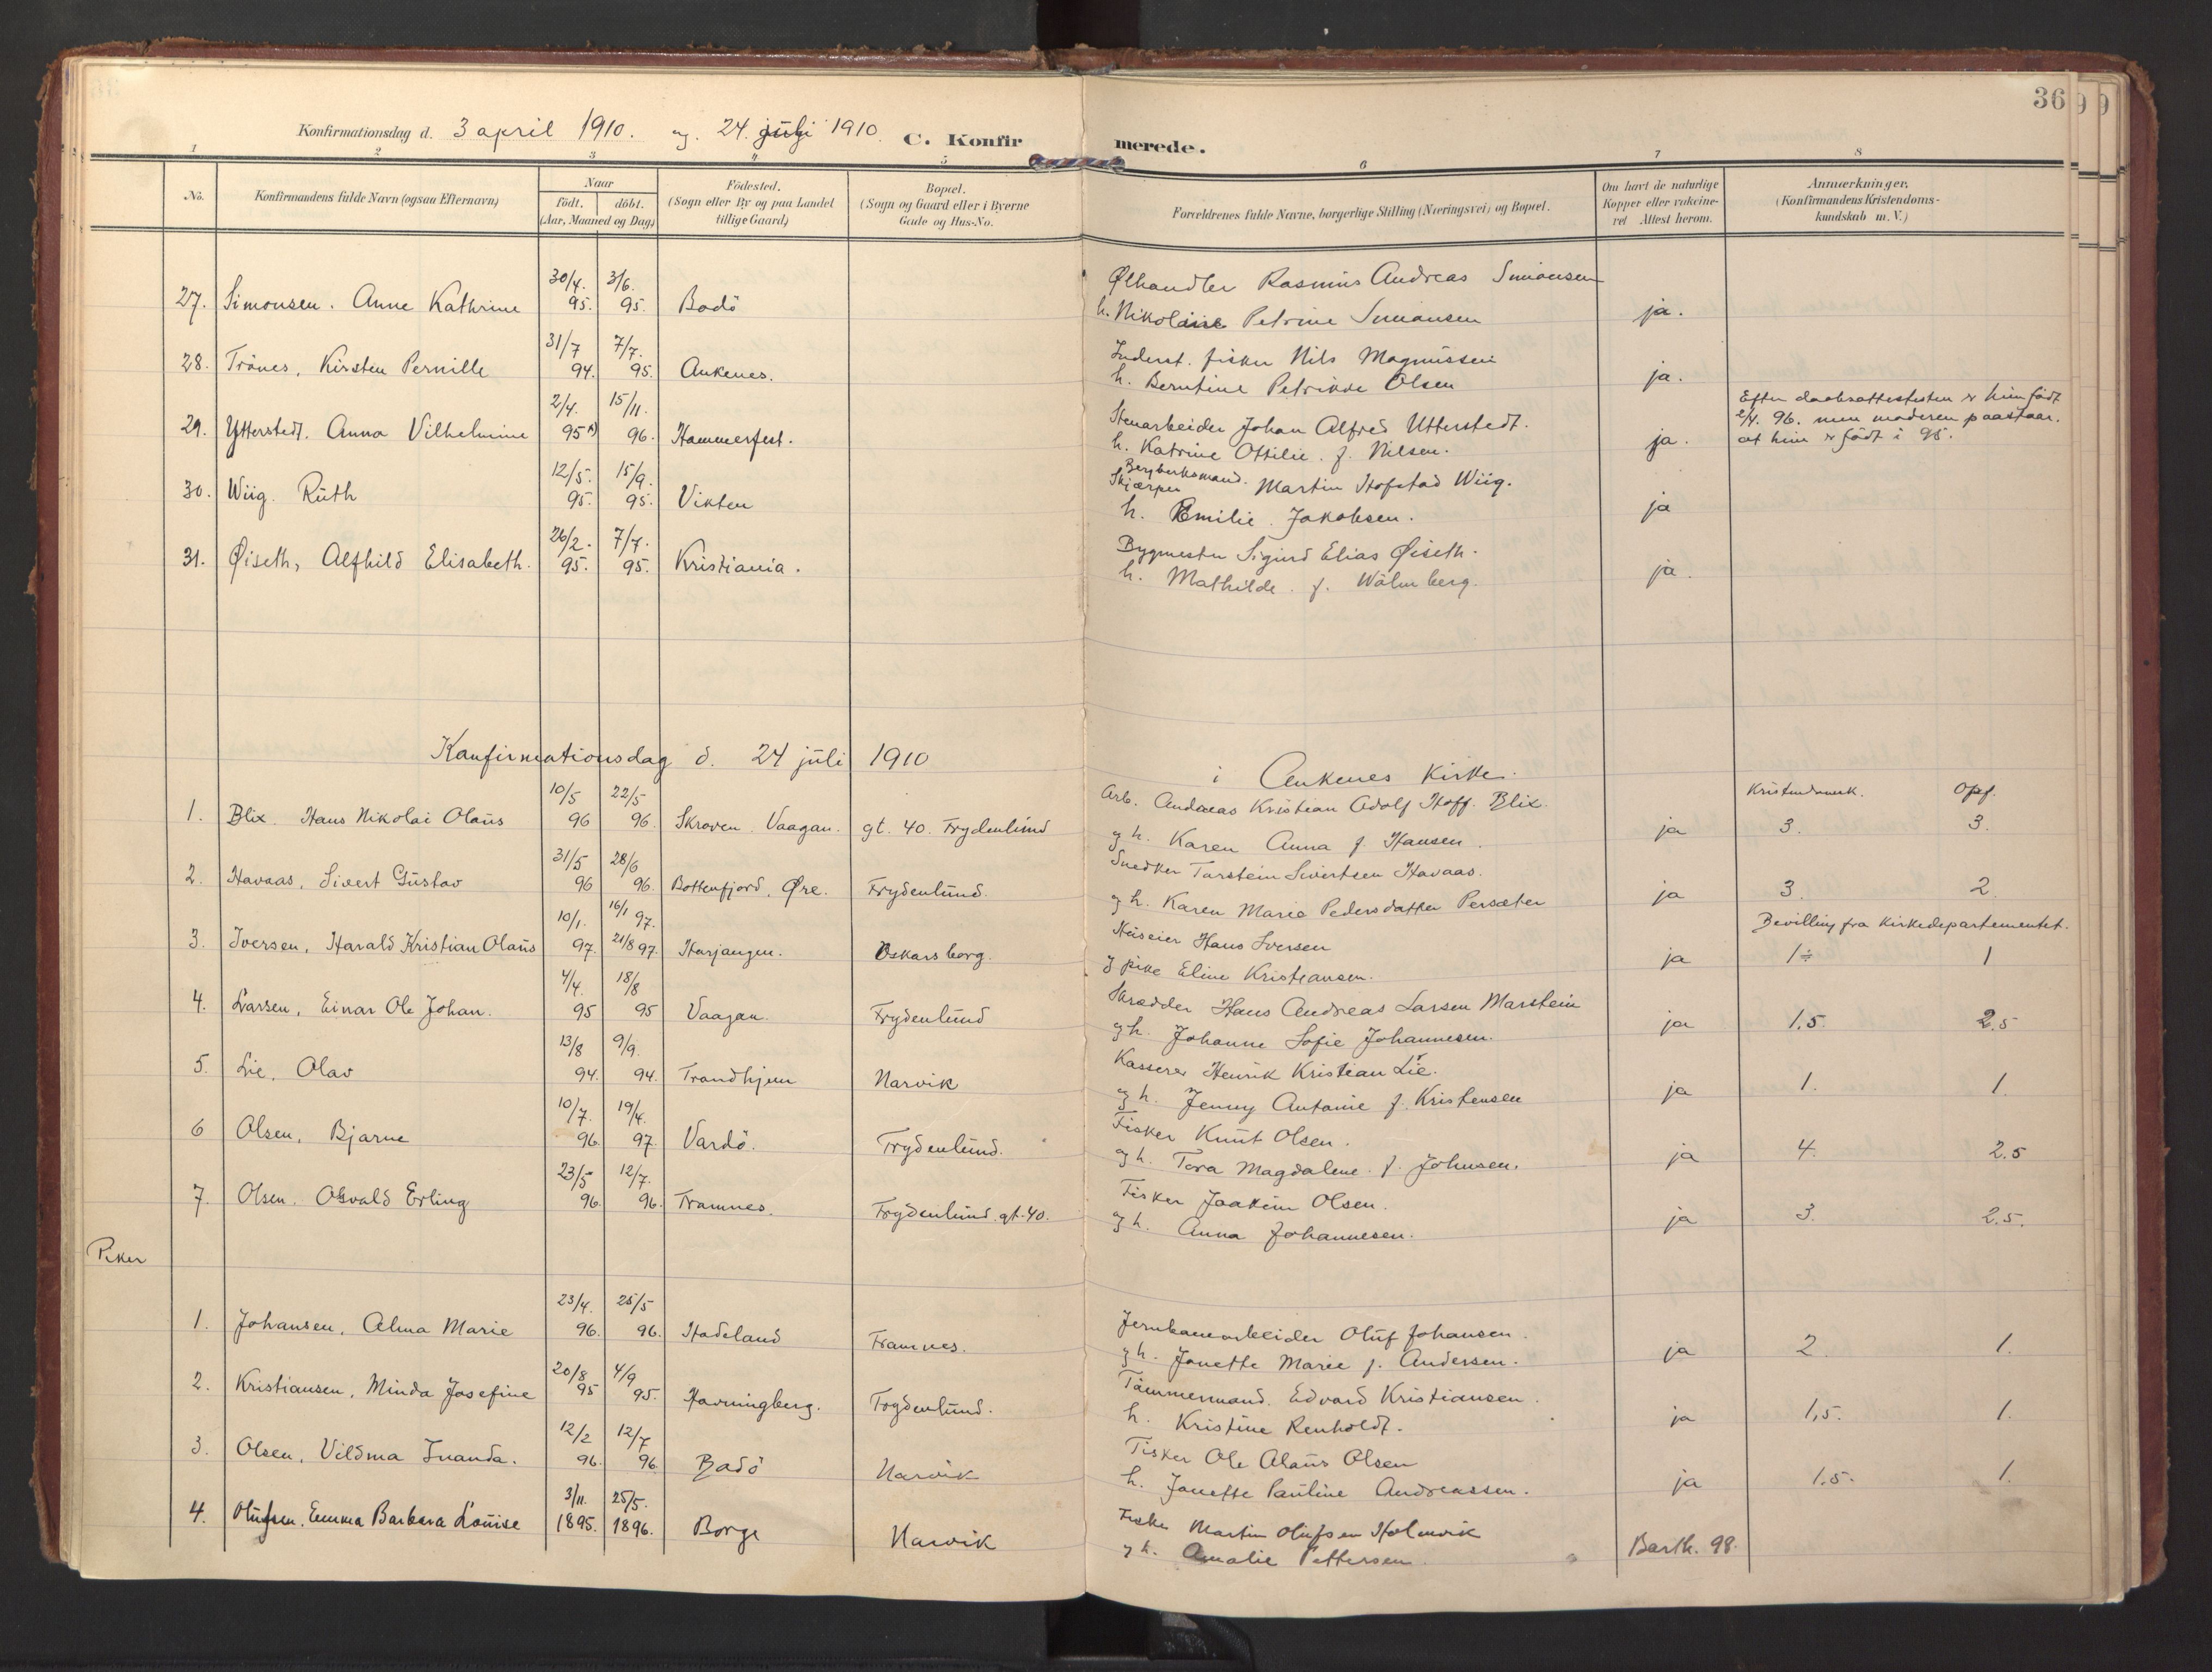 36
Konfirmationsdag d. 3 april 1910. og. 24. juli 1910 C. Konfirmerede.
1 2 3 4 5 6 7 8
No. Konfirmandens fulde Navn (ogsaa Efternavn) Naar födt. döbt. (Aar, Maaned og Dag) Födested. (Sogn eller By og paa Landet tillige Gaard) Bopæl. (Sogn og Gaard eller i Byerne Gade og Hus-No. Forældrenes fulde Navne, borgerlige Stilling (Næringsvei) og Bopæl. Om havt de naturlige Kopper eller vakcineret Attest herom. Anmærkninger. (Konfirmandens Kristendomskundskab m. V.)
27. Simonsen. Anne Kathrine 30/4. 95. 3/6. 95. Bodö Ølhandler Rasmus Andreas Simonsen
h. Nikoline Petrine Simonsen ja.
28. Trönes, Kirsten Pernille 31/7 94. 7/7. 95. Ankenes. Inderst. fisker Nils Magnussen
h. Berntine Petrikke Olsen ja.
29. Ytterstedt. Anna Vilhelmine 2/4. 95 15/11. 96. Hammerfest. Stenarbeider Johan Alfred Ytterstedt.
h. Katrine Ottilie. f. Nilsen. ja. Efter daabsattesten er hun födt 2/4. 96. men moderen paastaar. at hun er födt i 95.
30. Wiig. Ruth 12/5. 95. 15/9. 95. Vikten Skjærper Martin Hofstad Wiig.
h. Emilie. Jakobsen. ja
31. Øiseth, Alfhild Elisabeth. 26/2. 95. 7/7. 95. Kristiania. Bygmester Sigurd Elias Øiseth.
h. Mathilde. f. Wålmberg. ja.
Konfirmationsdag d. 24 juli 1910 i Ankenes Kirke.
Kristendomsk. Opf.
1. Blix. Hans Nikolai Olaus 10/5 96 22/5 96. Skroven. Vaagan. gt. 40. Frydenlund Arb. Andreas Kristian Adolf Hoff. Blix.
g h. Karen Anna f. Hansen. ja 3. 3.
2. Havaas, Sivert Gustav 31/5 96 28/6 96. Bottenfjord, Øre. Frydenlund. Snedker Torstein Sivertsen Havaas.
g h. Karen Marie Pedersdatter Persæter ja 3. 2.
3. Iversen, Harald Kristian Olaus 10/1. 97. 16/1 97. 21/8 97. Harjangen. Oskarsborg. Huseier Hans Iversen
g pike Eline Kristiansen. ja Bevilling fra Kirkedepartementet. 1÷ 1
4. Larsen, Einar Ole Johan. 4/4. 95 18/8 95 Vaagan. Frydenlund Skrædder Hans Andreas Larsen Marstein
g h. Johanne Sofie Johannesen. ja 1.5. 2.5
5. Lie, Olav 13/8 94. 9/9. 94. Trondhjem Narvik Kasserer Henrik Kristian Lie.
g h. Jenny Antonie f. Kristensen ja 1. 1.
6 Olsen, Bjarne 10/7. 96. 19/4. 97. Vardö. Frydenlund. Fisker Knut Olsen.
g h. Tora Magdalene. f. Johnsen. ja 4. 2.5
7. Olsen. Osvald Erling 23/5 96. 12/7. 96. Framnes. Frydenlund. gt. 40. Fisker Joakim Olsen.
g h. Anna Johannesen. ja 3. 2.5.
Piker
1. Johansen, Alma Marie 23/4. 96. 25/5 96. Hadeland Framnes. Jernbanearbeider Oluf Johansen.
g h. Jonette Marie f. Andersen. ja 2. 1.
2. Kristiansen, Minda Josefine 20/8 95 4/9 95. Havningberg. Frydenlund. Tömmermand. Edvard Kristiansen.
h. Kristine Renholdt. ja 1,5. 1.
3. Olsen, Vildma Inanda. 12/2 96. 12/7 96. Bodö Narvik Fisker Ole Olaus Olsen
h. Jonette Pauline Andreassen. ja 1.5. 1.
4. Olufsen. Emma Barbara Louise 3/11. 1895. 25/5. 1896. Borge Narvik Fisker Martin Olufsen Holmvik
g h. Amalie Pettersen. Barth. 98.